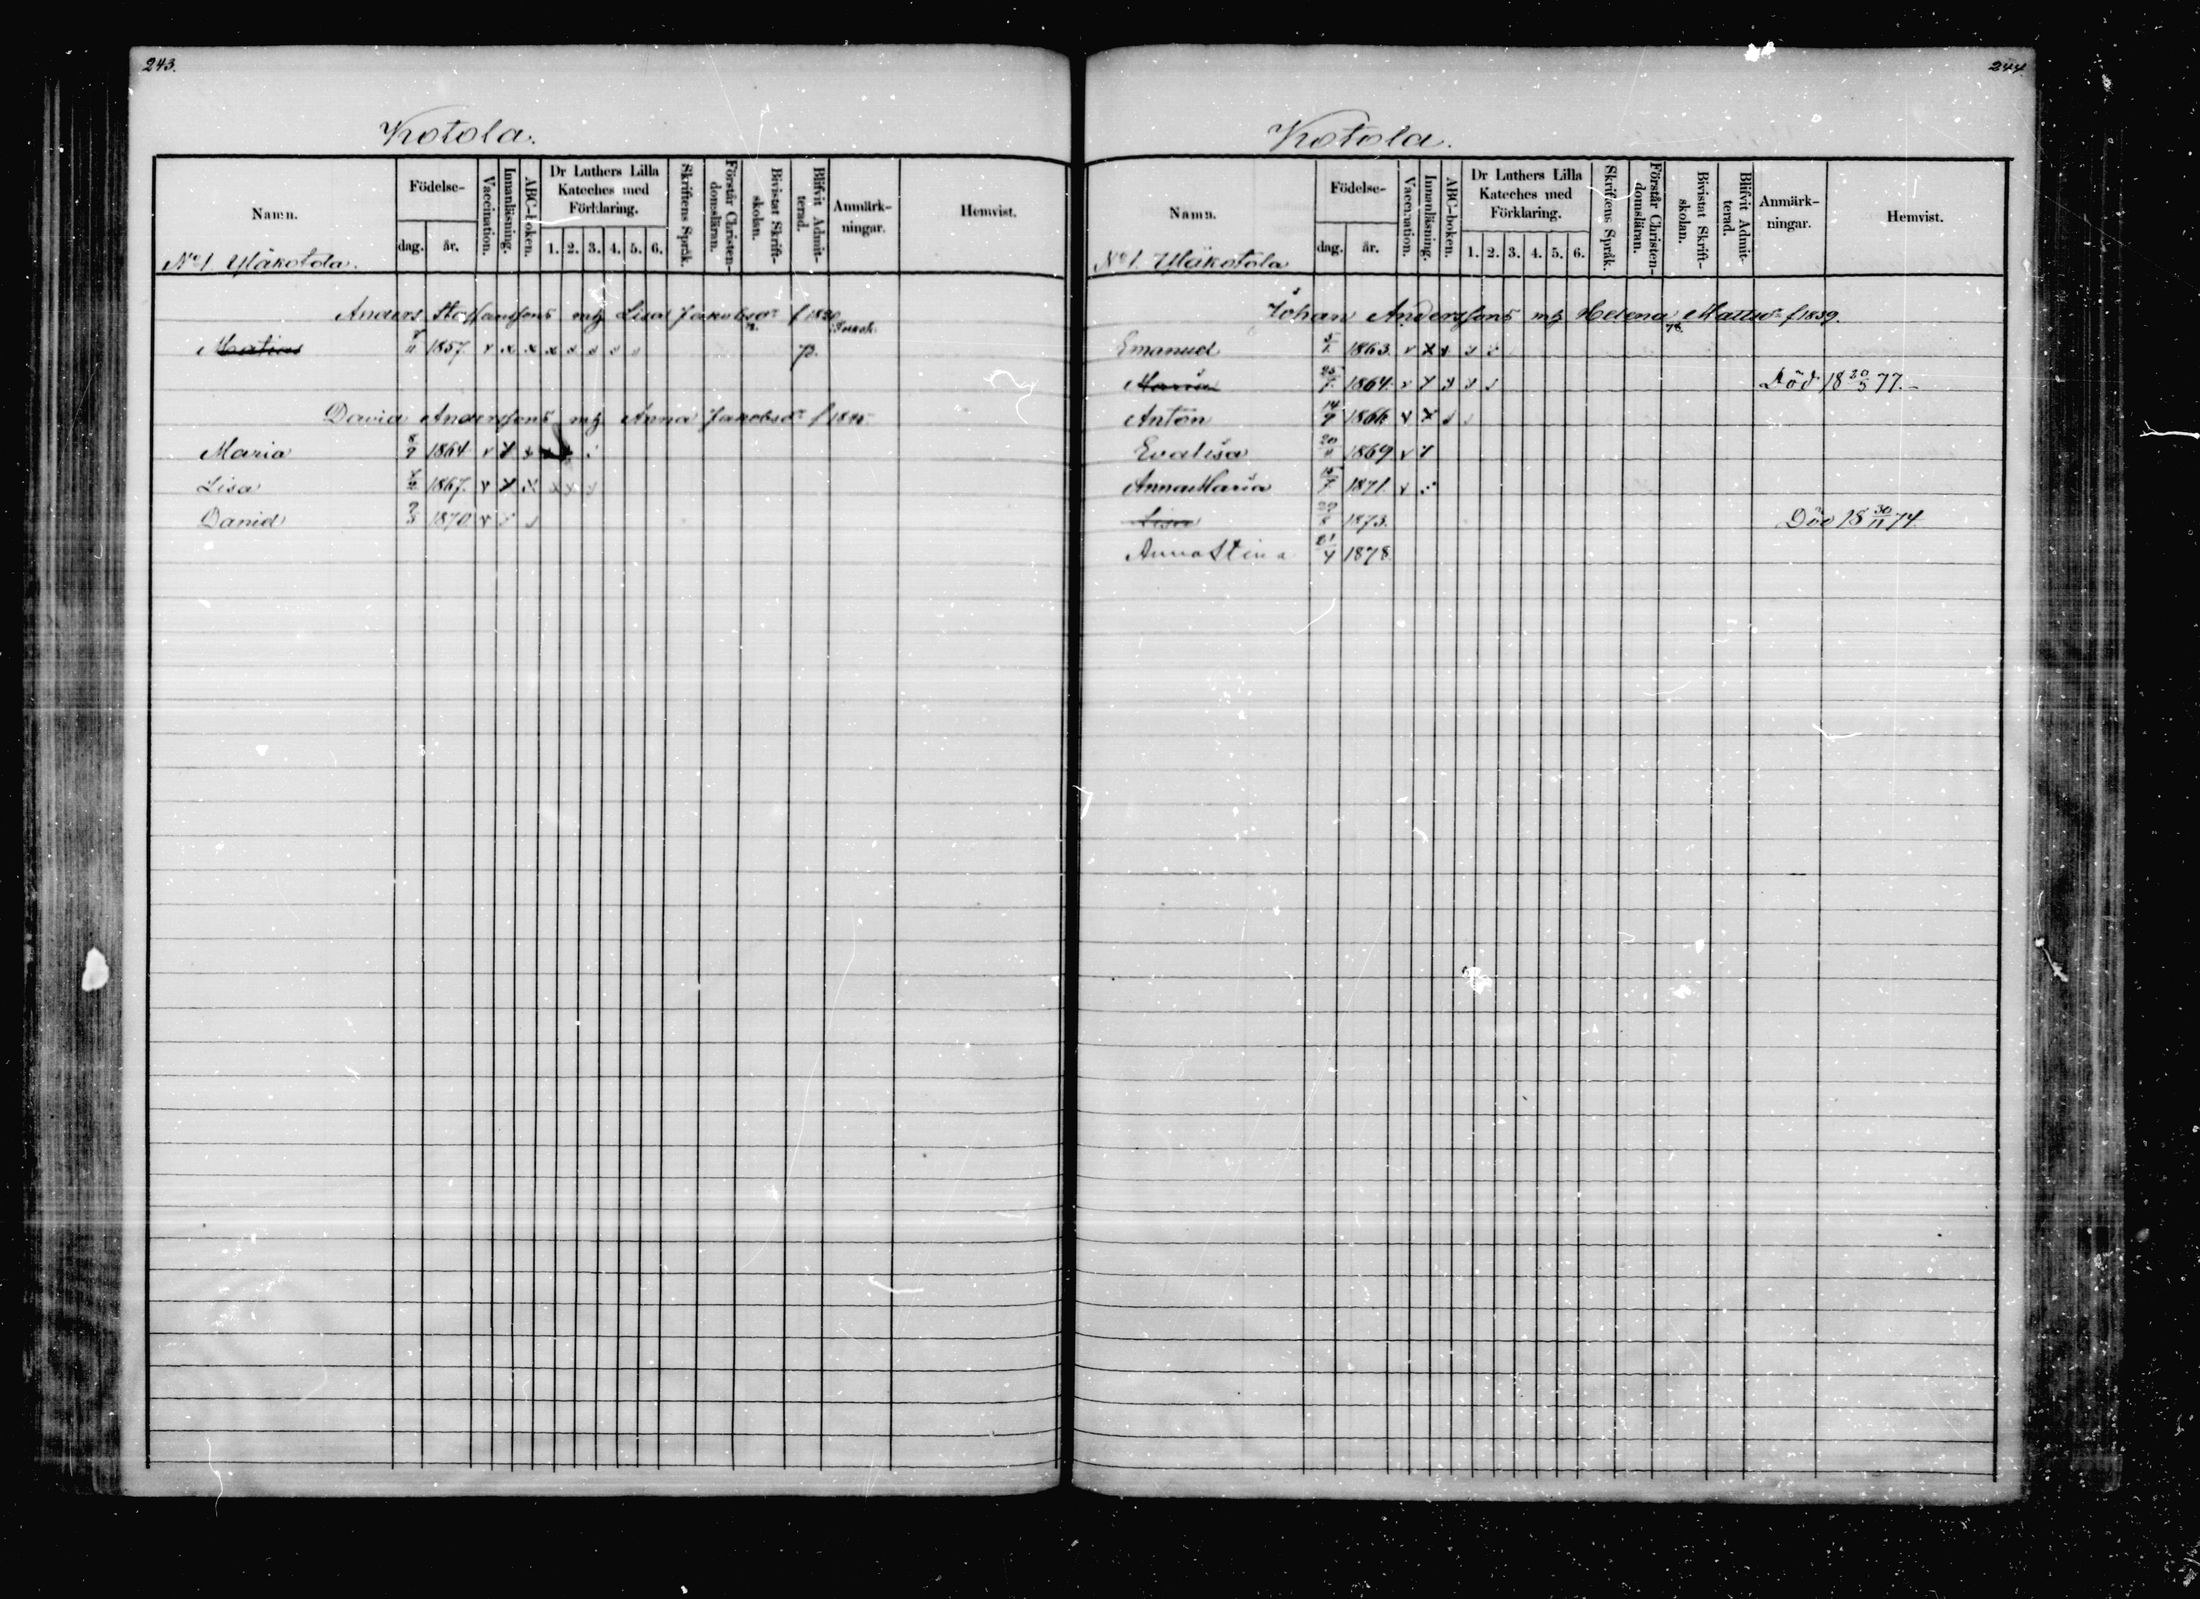 243.
Kotola.
Namn. Födelse- dag. år. Vaccination. Innanläsning. ABC-boken. Dr Luthers Lilla Kateches med Förklaring. 1. 2. 3. 4. 5. 6. Skriftens Språk. Förstår Christen-domsläran. Bivistat Skrift-skolan. Blifvit Admit-terad. Anmärk-ningar. Hemvist.
No 1 Yläkotola.
Anders Staffanssons m/h Lisa Jakobsdr f
1857. v x x x
p.
David Anderssons m/h Anna Jakobsdr f
Maria 8/9 1864 v
Lisa 1867. v x x x x
Daniel 1870 v
244
Kotola.
Namn. Födelse- dag. år. Vaccination. Innanläsning. ABC-boken. Dr Luthers Lilla Kateches med Förklaring. 1. 2. 3. 4. 5. 6. Skriftens Språk. Förstår Christen-domsläran. Bivistat Skrift-skolan. Blifvit Admit-terad. Anmärk-ningar. Hemvist.
No 1. Yläkotola
Johan Anderssons m/h Helena Mattsdr f 1839.
Emanuel 5/1 1863. v x v
Maria 25/7 1864. v Död 18 20/3 77.-
Anton 14/9 1866 v x
Evalisa 20/11 1869 v
Anna Maria 15/7 1871. v
Lisa 29/8 1873. Död 18 30/11 74
Anna Stina 21/4 1878.